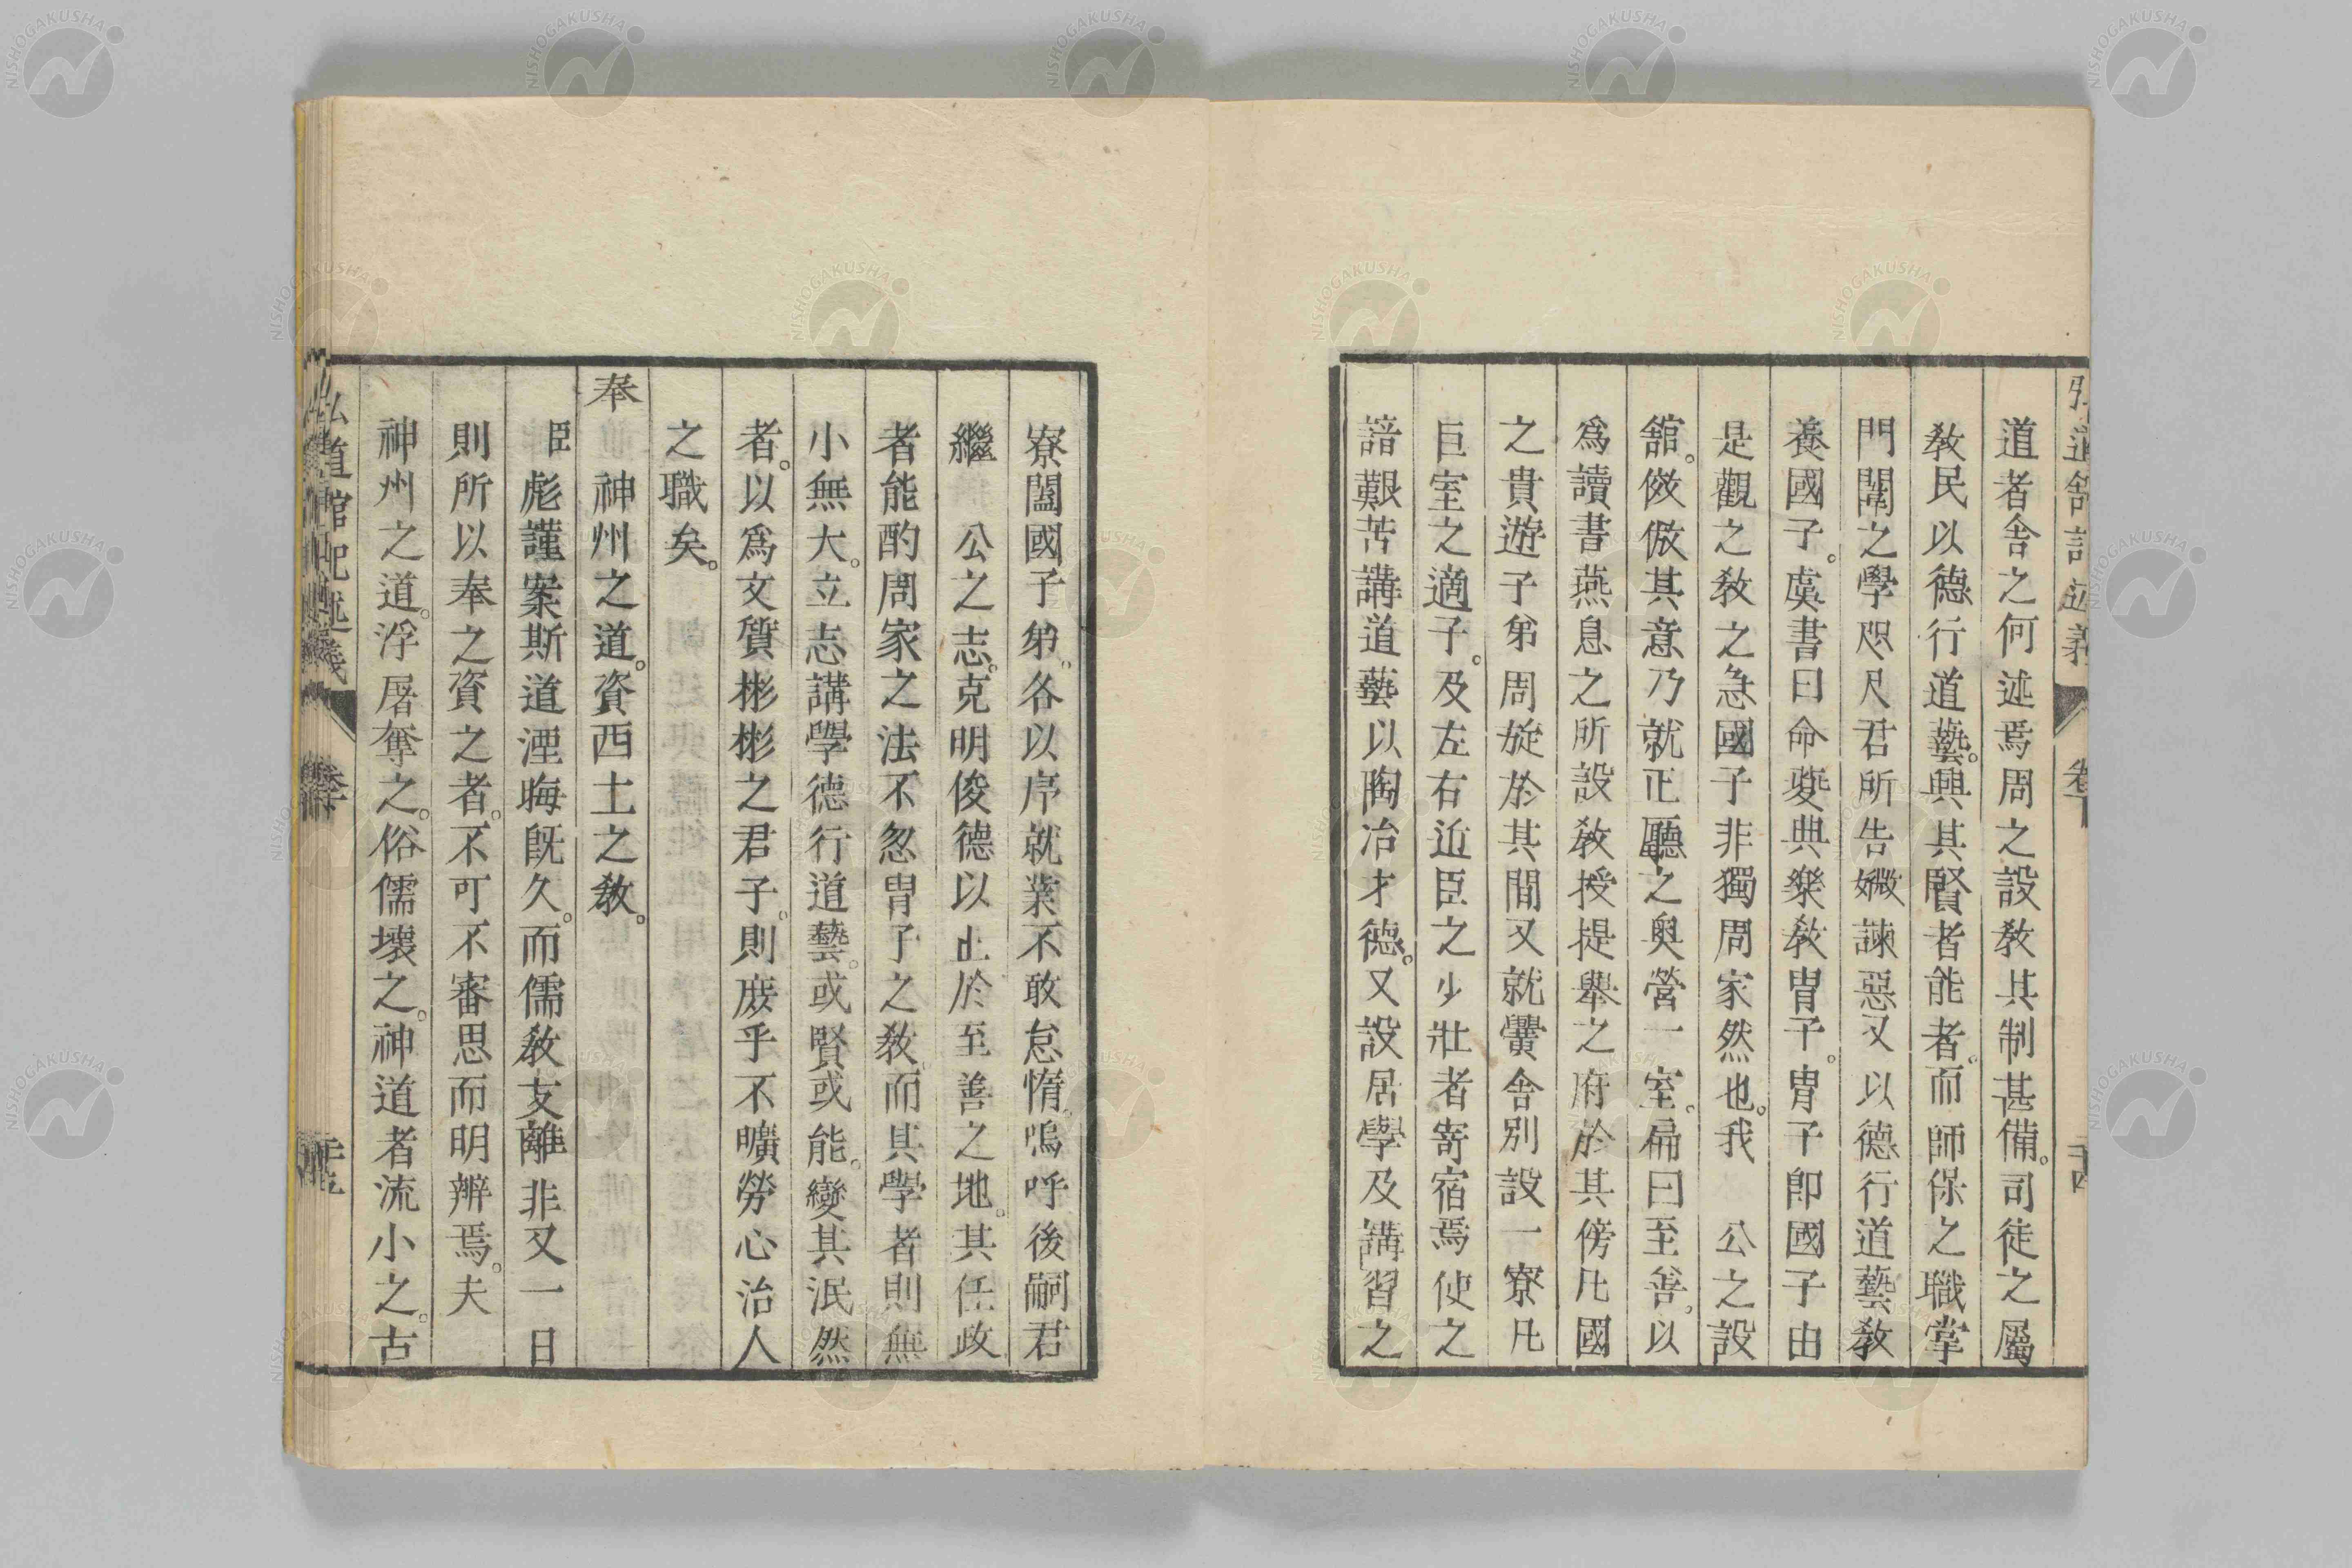 道者舍之何述焉周之設敎其制甚備。司徒之屬
敎民以德行道藝。興其賢者能者。而師保之職掌
門闈之學咫尺君所告媺諫惡又以德行道藝敎
養國子。虞書曰命夔典樂敎冑子。冑子卽國子由
是觀之敎之急國子非獨周家然也。我　公之設
舘。傚倣其意乃就正廳之奧營一室。扁曰至善。以
爲讀書燕息之所設敎授提擧之府於其傍凡國
之貴遊子弟周旋於其間又就黌舍別設一寮凡
巨室之適子。及左右近臣之少壯者寄宿焉使之
諳艱苦講道藝以陶冶才德。又設居學及講習之
寮闔國子弟。各以序就業不敢怠惰。嗚呼後嗣君
繼　公之志。克明俊德以止於至善之地。其任政
者能酌周家之法不忽冑子之敎。而其學者則無
小無大。立志講學德行道藝。或賢或能。變其泯然
者。以爲文質彬彬之君子。則庶乎不曠勞心治人
之職矣。
奉　神州之道。資西土之敎。
臣彪謹案斯道湮晦旣久。而儒敎支離非又一日
則所以奉之資之者。不可不審思而明辨焉。夫
神州之道。浮屠奪之。俗儒壞之。神道者流小之。古
弘道館記述義　卷下